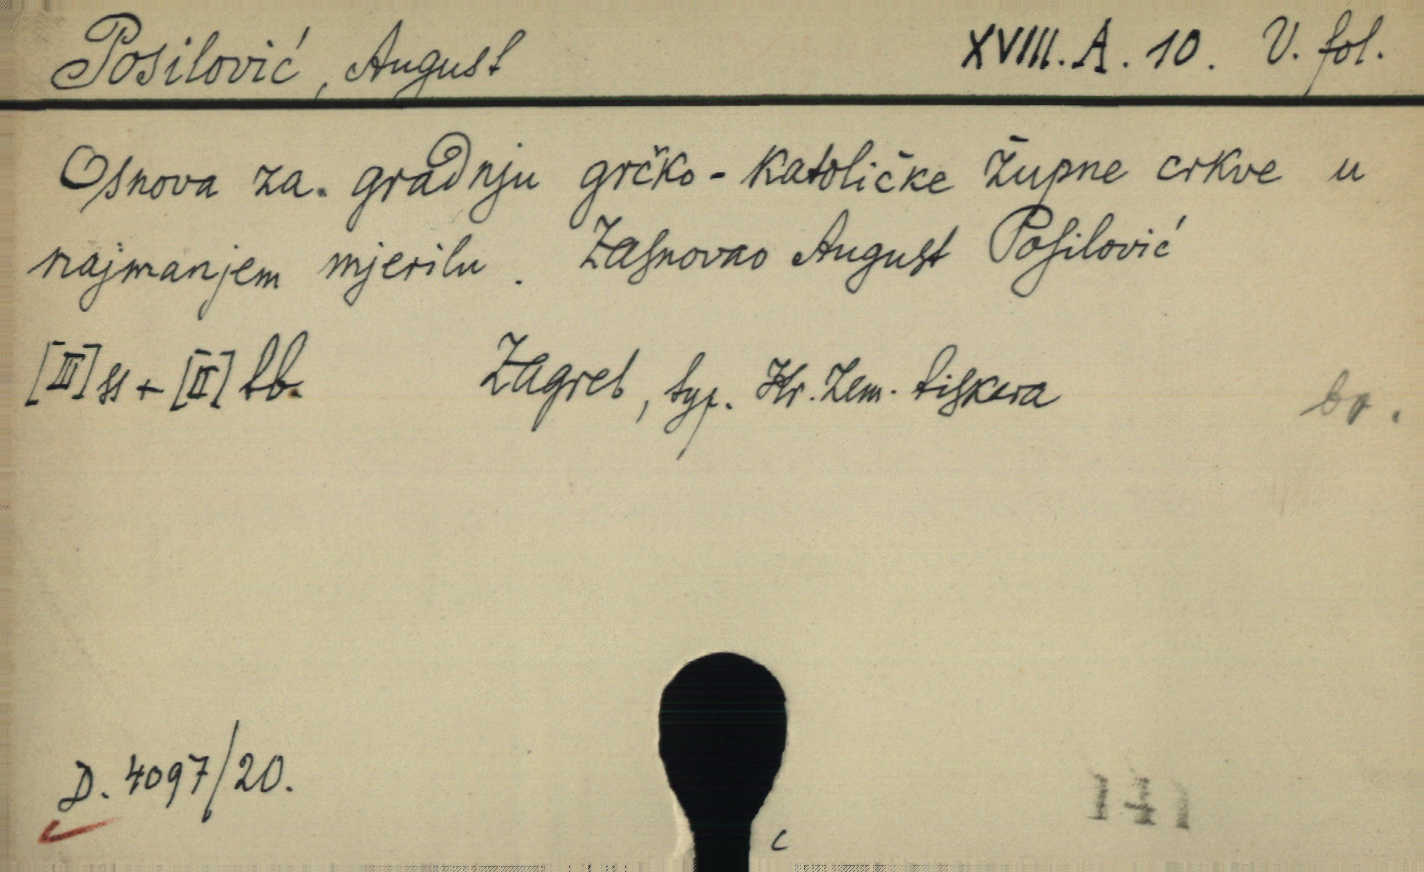 Posilović, August XVIII. A. 10. V. fol.
Osnova za. gradnju grčko-katoličke župne crkve u
najmanjem mjerilu. Zasnovao August Posilović
[III] ss + [II] tb. Zagreb, typ. Kr. Zem. tiskara br.
D. 4097/20.
c